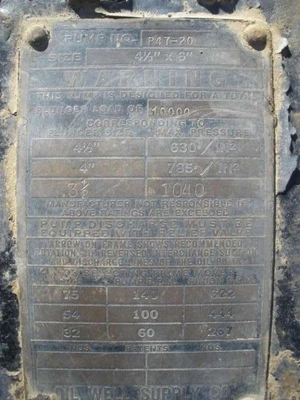 PUMP NO. P47-20
SIZE 4½" x 6"
WARNING
THIS PUMP IS DESIGNED FOR A TOTAL
PLUNGER LOAD OF 10000
CORRESPONDING TO
PLUNGER SIZE MAX. PRESSURE
4½" 630/IN²
4" 795/IN²
3½ 1040
MANUFACTURER NOT RESPONSIBLE IF
ABOVE RATINGS ARE EXCEEDED
PUMP DISCHARGE MUST BE
EQUIPPED WITH RELIEF VALVE
ARROW ON FRAME SHOWS RECOMMENDED
ROTATION
75 140 622
54 100 444
32 60 267
PATENTS
OIL WELL SUPPLY CO.